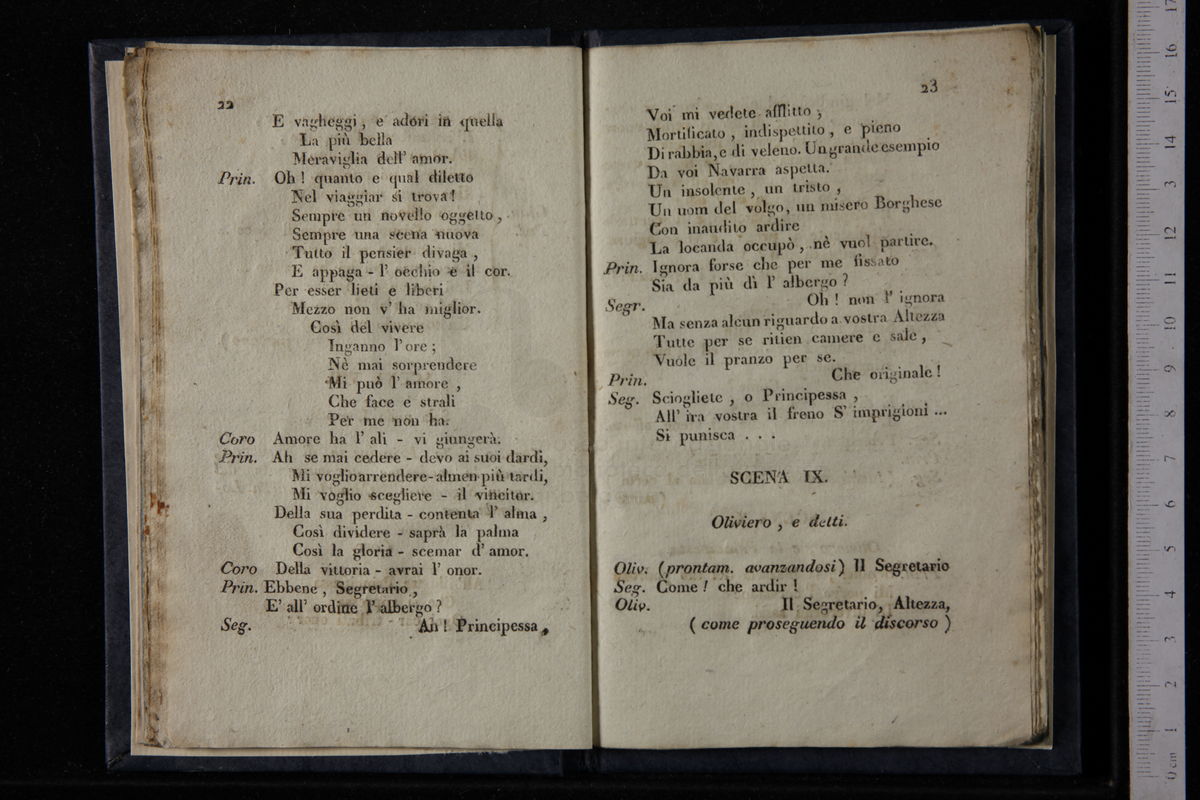 22
E vagheggi, e adori in quella
La più bella
Meraviglia dell' amor.
Prin. Oh! quanto e qual diletto
Nel viaggiar si trova!
Sempre un novello oggetto,
Sempre una scena nuova
Tutto il pensier divaga,
E appaga - l' occhio e il cor.
Per esser lieti e liberi
Mezzo non v' ha miglior.
Così del vivere
Inganno l' ore;
Nè mai sorprendere
Mi può l' amore,
Che face e strali
Per me non ha.
Coro Amore ha l' ali - vi giungerà.
Prin. Ah se mai cedere - devo ai suoi dardi,
Mi voglio arrendere - almen più tardi,
Mi voglio scegliere - il vincitor.
Della sua perdita - contenta l' alma,
Così dividere - saprà la palma
Così la gloria - scemar d' amor.
Coro Della vittoria - avrai l' onor.
Prin. Ebbene, Segretario,
E' all' ordine l' albergo?
Seg. Ah! Principessa,
23
Voi mi vedete afflitto;
Mortificato, indispettito, e pieno
Di rabbia, e di veleno. Un grande esempio
Da voi Navarra aspetta.
Un insolente, un tristo,
Un uom del volgo, un misero Borghese
Con inaudito ardire
La locanda occupò, nè vuol partire.
Prin. Ignora forse che per me fissato
Sia da più dì l' albergo?
Segr. Oh! non l' ignora
Ma senza alcun riguardo a vostra Altezza
Tutte per se ritien camere e sale,
Vuole il pranzo per se.
Prin. Che originale!
Seg. Sciogliete, o Principessa,
All' ira vostra il freno S' imprigioni ...
Si punisca . . .
SCENA IX.
Oliviero, e detti.
Oliv. (prontam. avanzandosi) Il Segretario
Seg. Come! che ardir!
Oliv. Il Segretario, Altezza,
(come proseguendo il discorso)
0 cm 1 2 3 4 5 6 7 8 9 10 11 12 13 14 15 16 17